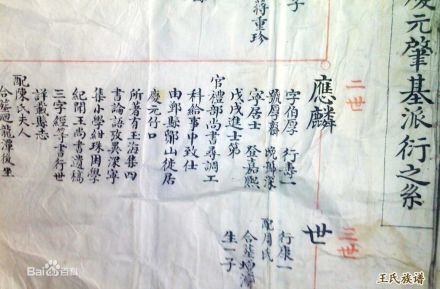 慶元肇基派衍之系
二世
應麟
字伯厚 行萬一
號厚齋 晚號深
寧居士 登嘉熙
戊戌進士第
官禮部尚書尋調工
科給事中致仕
由鄞縣鄮山徙居
慶元
所著有玉海集四
書論語攷異深寧
集小學紺珠困學
紀聞玉尚書遺稿
三字經等書行世
詳載縣志
配陳氏夫人
合葬
龍潭後坐
三世
世
行康一
配周氏
合葬
生一子
蔣重珍
Bai 百科
王氏族谱